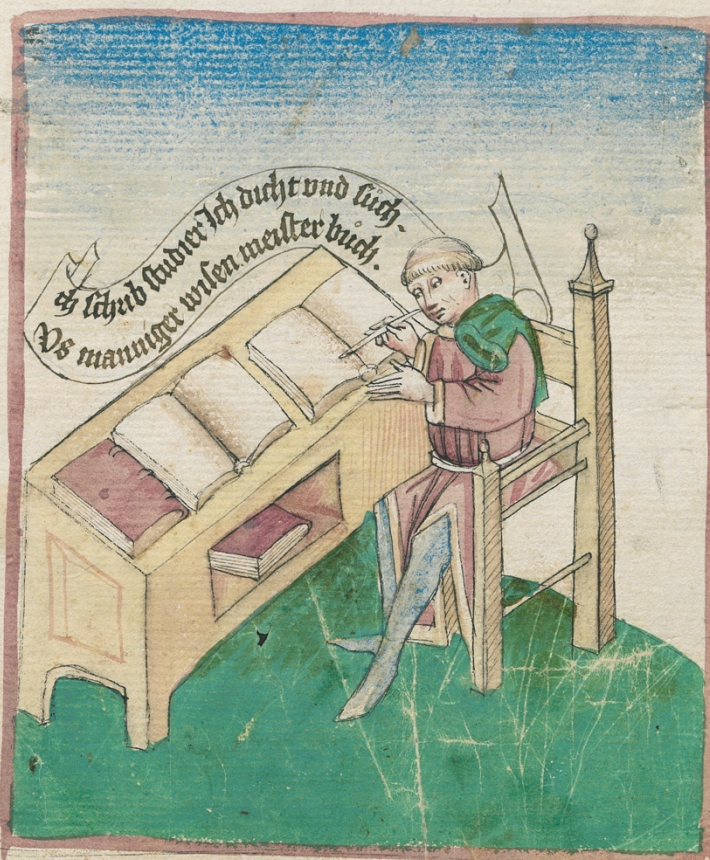 ch schrib studier Ich dicht vnd sůch.
Vs manniger wisen meister bůch.